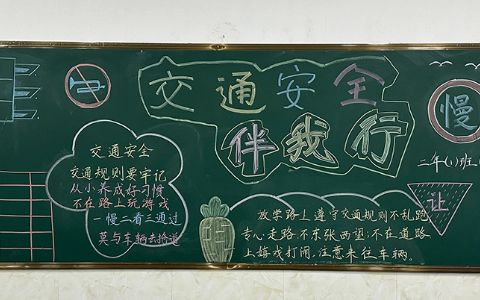 交通安全
伴我行
慢
二年(1)班
让
交通安全
交通规则要牢记
从小养成好习惯
不在路上玩游戏
一慢二看三通过
莫与车辆去抢道
放学路上遵守交通规则不乱跑
专心走路不东张西望;不在道路
上嬉戏打闹,注意来往车辆。